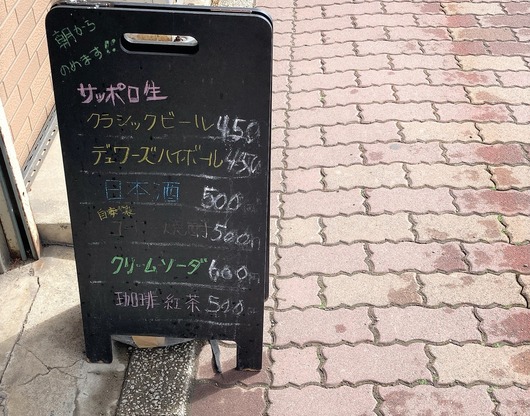 朝から
のめます!!
サッポロ生
クラシックビール 450
デュワーズハイボール 450
日本酒 500
自家製
焼酎 500円
クリームソーダ 600
珈琲 紅茶 500